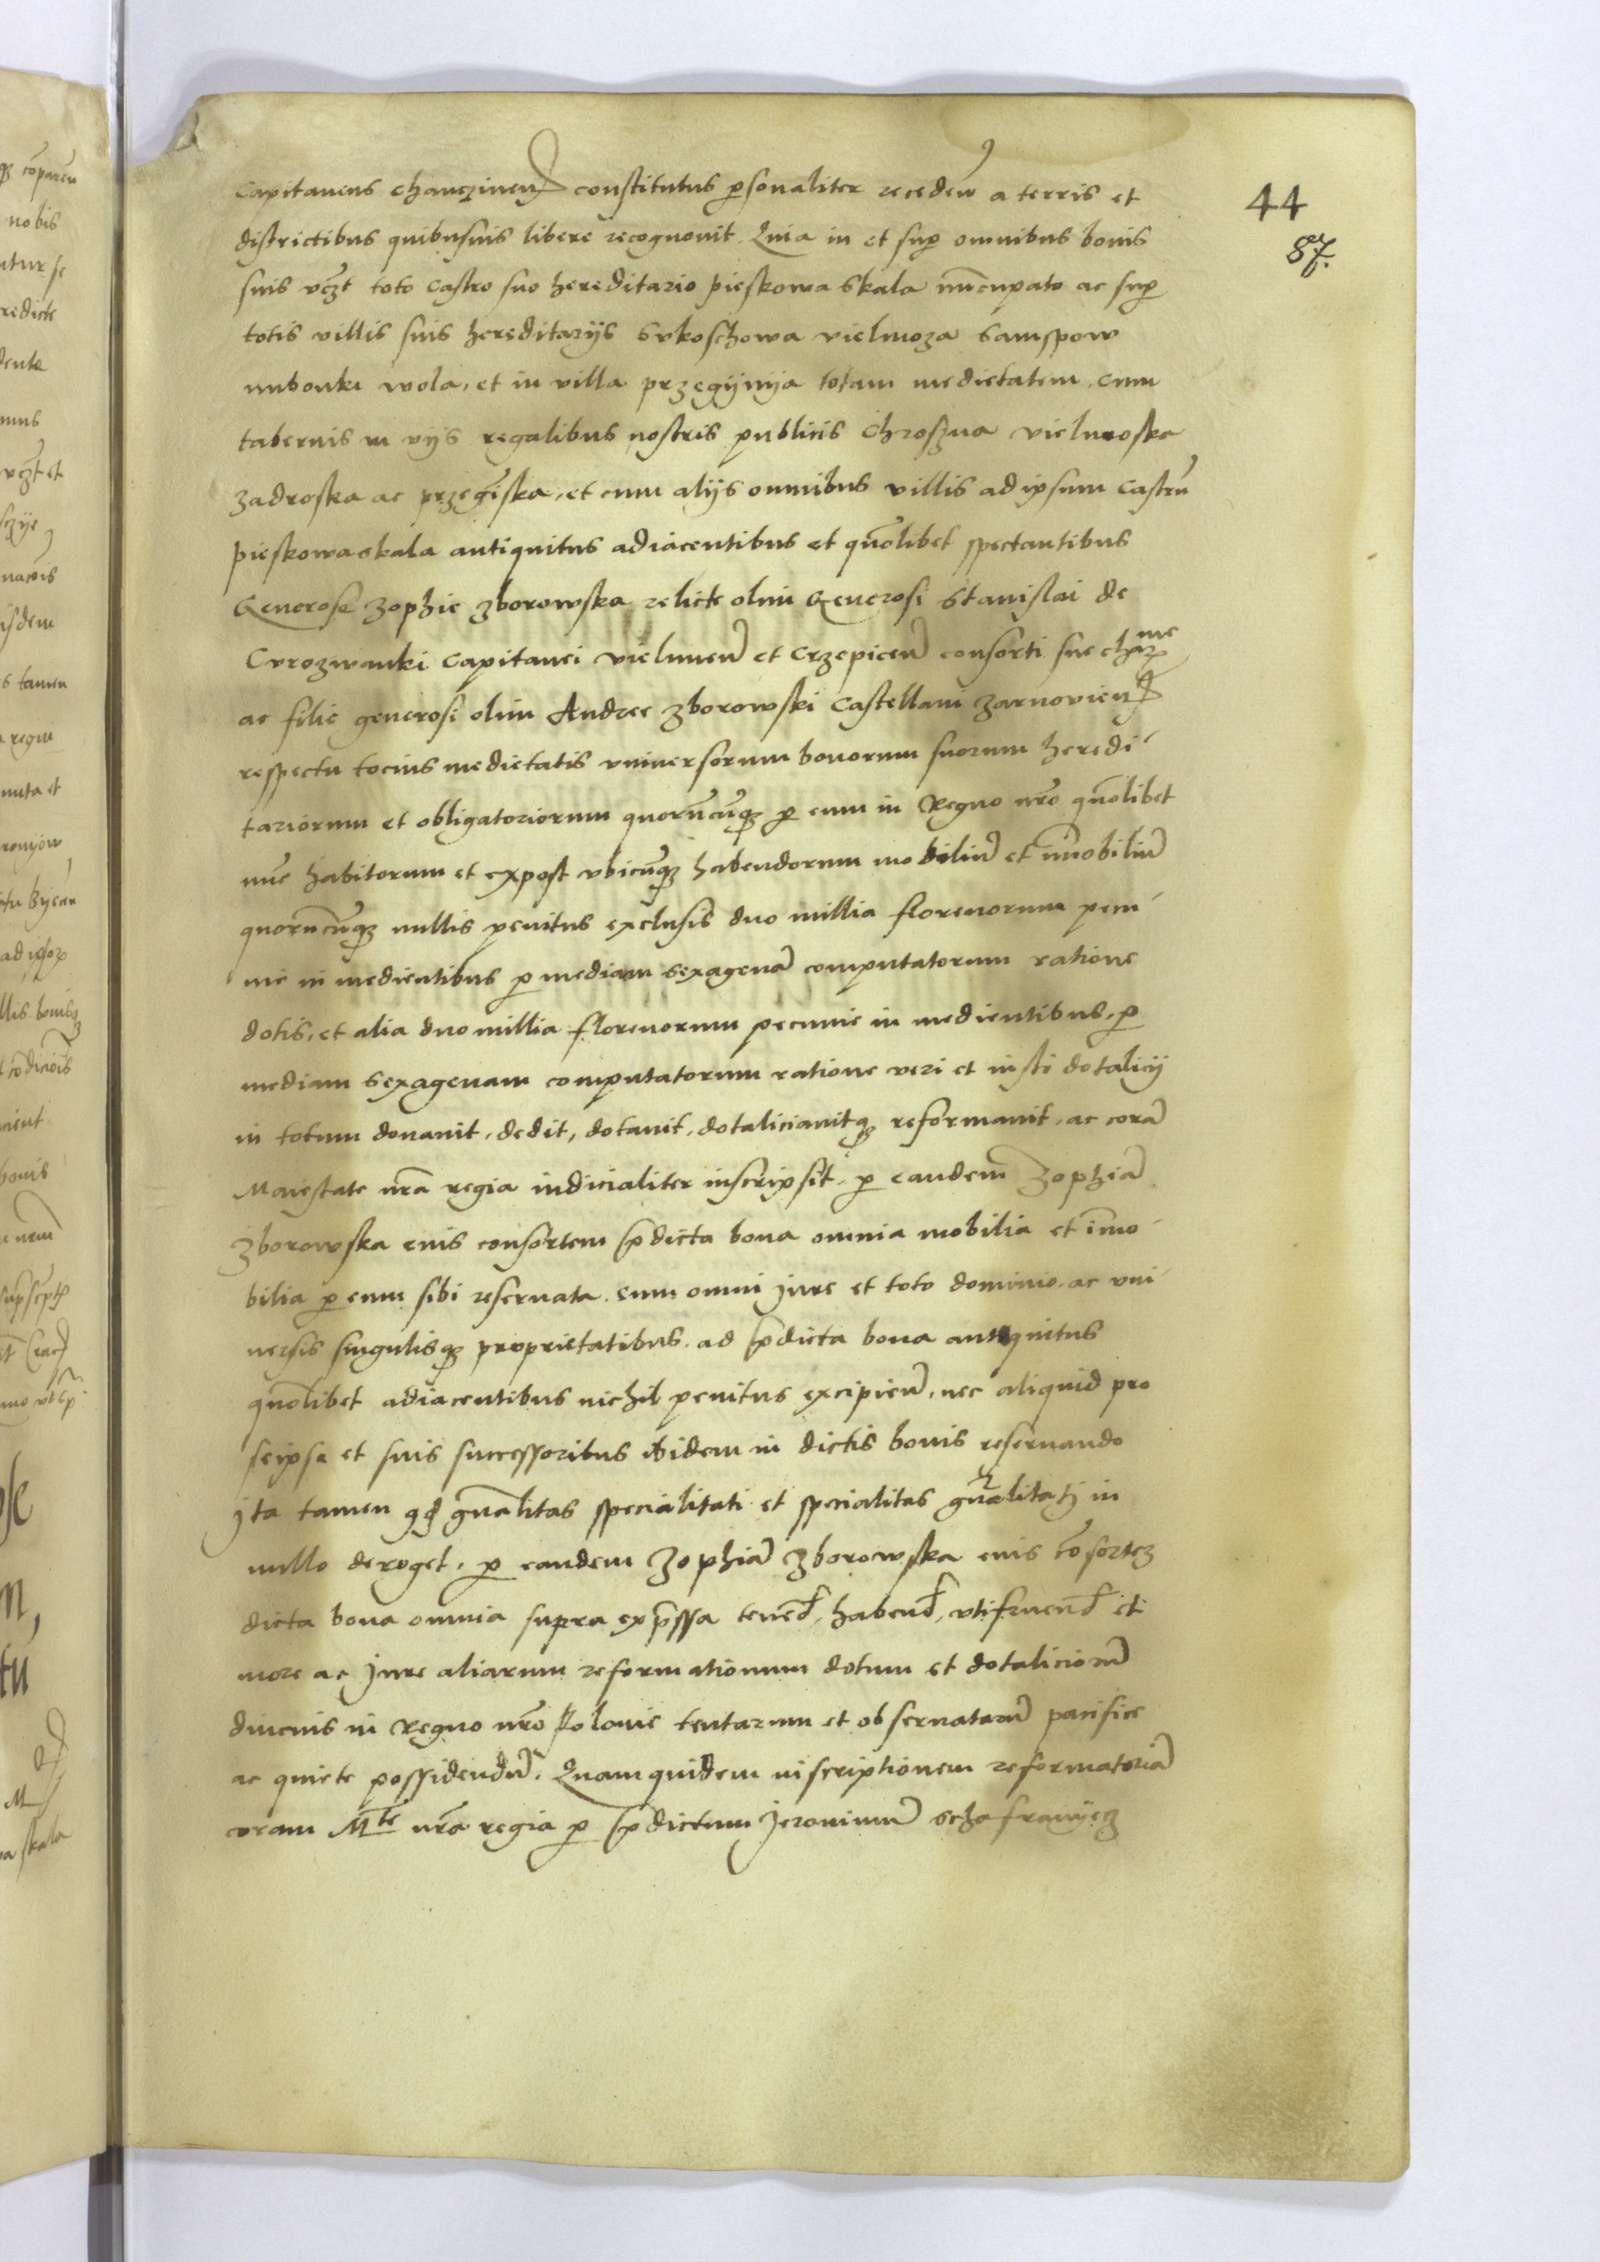 Capitaneus Chanczinen constitutus personaliter recedens a terris et
44
districtibus quibusuis libere recognouit Quia in et super omnibus bonis
87.
suis vczt toto Castro suo hereditario pieskowa Skala nuncupato ac super
totis villis suis hereditarijs Svkoschowa vielmoza Samspow
wola, et in villa przegijnija totam medietatem, cum
tabernis in vijs regalibus nostris publicis Chroszna vielmoska
zadroska ac przeginska, et cum alijs omnibus villis ad ipsum Castrum
pieskowaskala antiquitus adiacentibus et quomodolibet spectantibus
Generose Zophie Zborowska relicte olim Generosi Stanislai de
Curozwanki Capitanei vielunen et Crzepicen consorti sue
ac filie generosi olim Andree Zborowski Castellani Zarnovien
respectu tocius medietatis vniuersorum bonorum suorum heredi
tariorum et obligatoriorum quorumcumque per eum in Regno nro quomodolibet
nunc habitorum et expost vbicumque habendorum mobilium et immobilium
quorumcumque nullis penitus exclusis duo millia florenorum pecu
nie in medientibus per mediam sexagenam computatorum ratione
dotis, et alia duo millia florenorum pecunie in medientibus, per
mediam sexagenam computatorum ratione veri et iusti dotalicij
in totum donauit, dedit, dotauit, dotaliciauitque reformauit, ac coram
Maiestate nra regia iudicialiter inscripsit, per eandem Zophiam
Zborowska eius consortem predicta bona omnia mobilia et immo
bilia per eum sibi reseruata, cum omni jure et toto dominio, ac vni
uersis singulisque proprietatibus, ad predicta bona antiquitus
quomodolibet adiacentibus nichil penitus excipiendo, nec aliquid pro
se ipso et suis successoribus ibidem in dictis bonis reseruando
jta tamen quod generalitas specialitati et specialitas generalitatj in
nullo deroget, per eandem Zophiam Zborowska eius consortem
dicta bona omnia supra expressa tenend, habend, vtifruend et
more ac jure aliarum reformationum dotum et dotaliciorum
diucius in Regno nro Polonie tentarum et obseruatarum pacifice
ac quiete possidendum. Quam quidem inscriptionem reformatoriam
coram Mte nra regia per predictum Jeronimum Schafranijecz